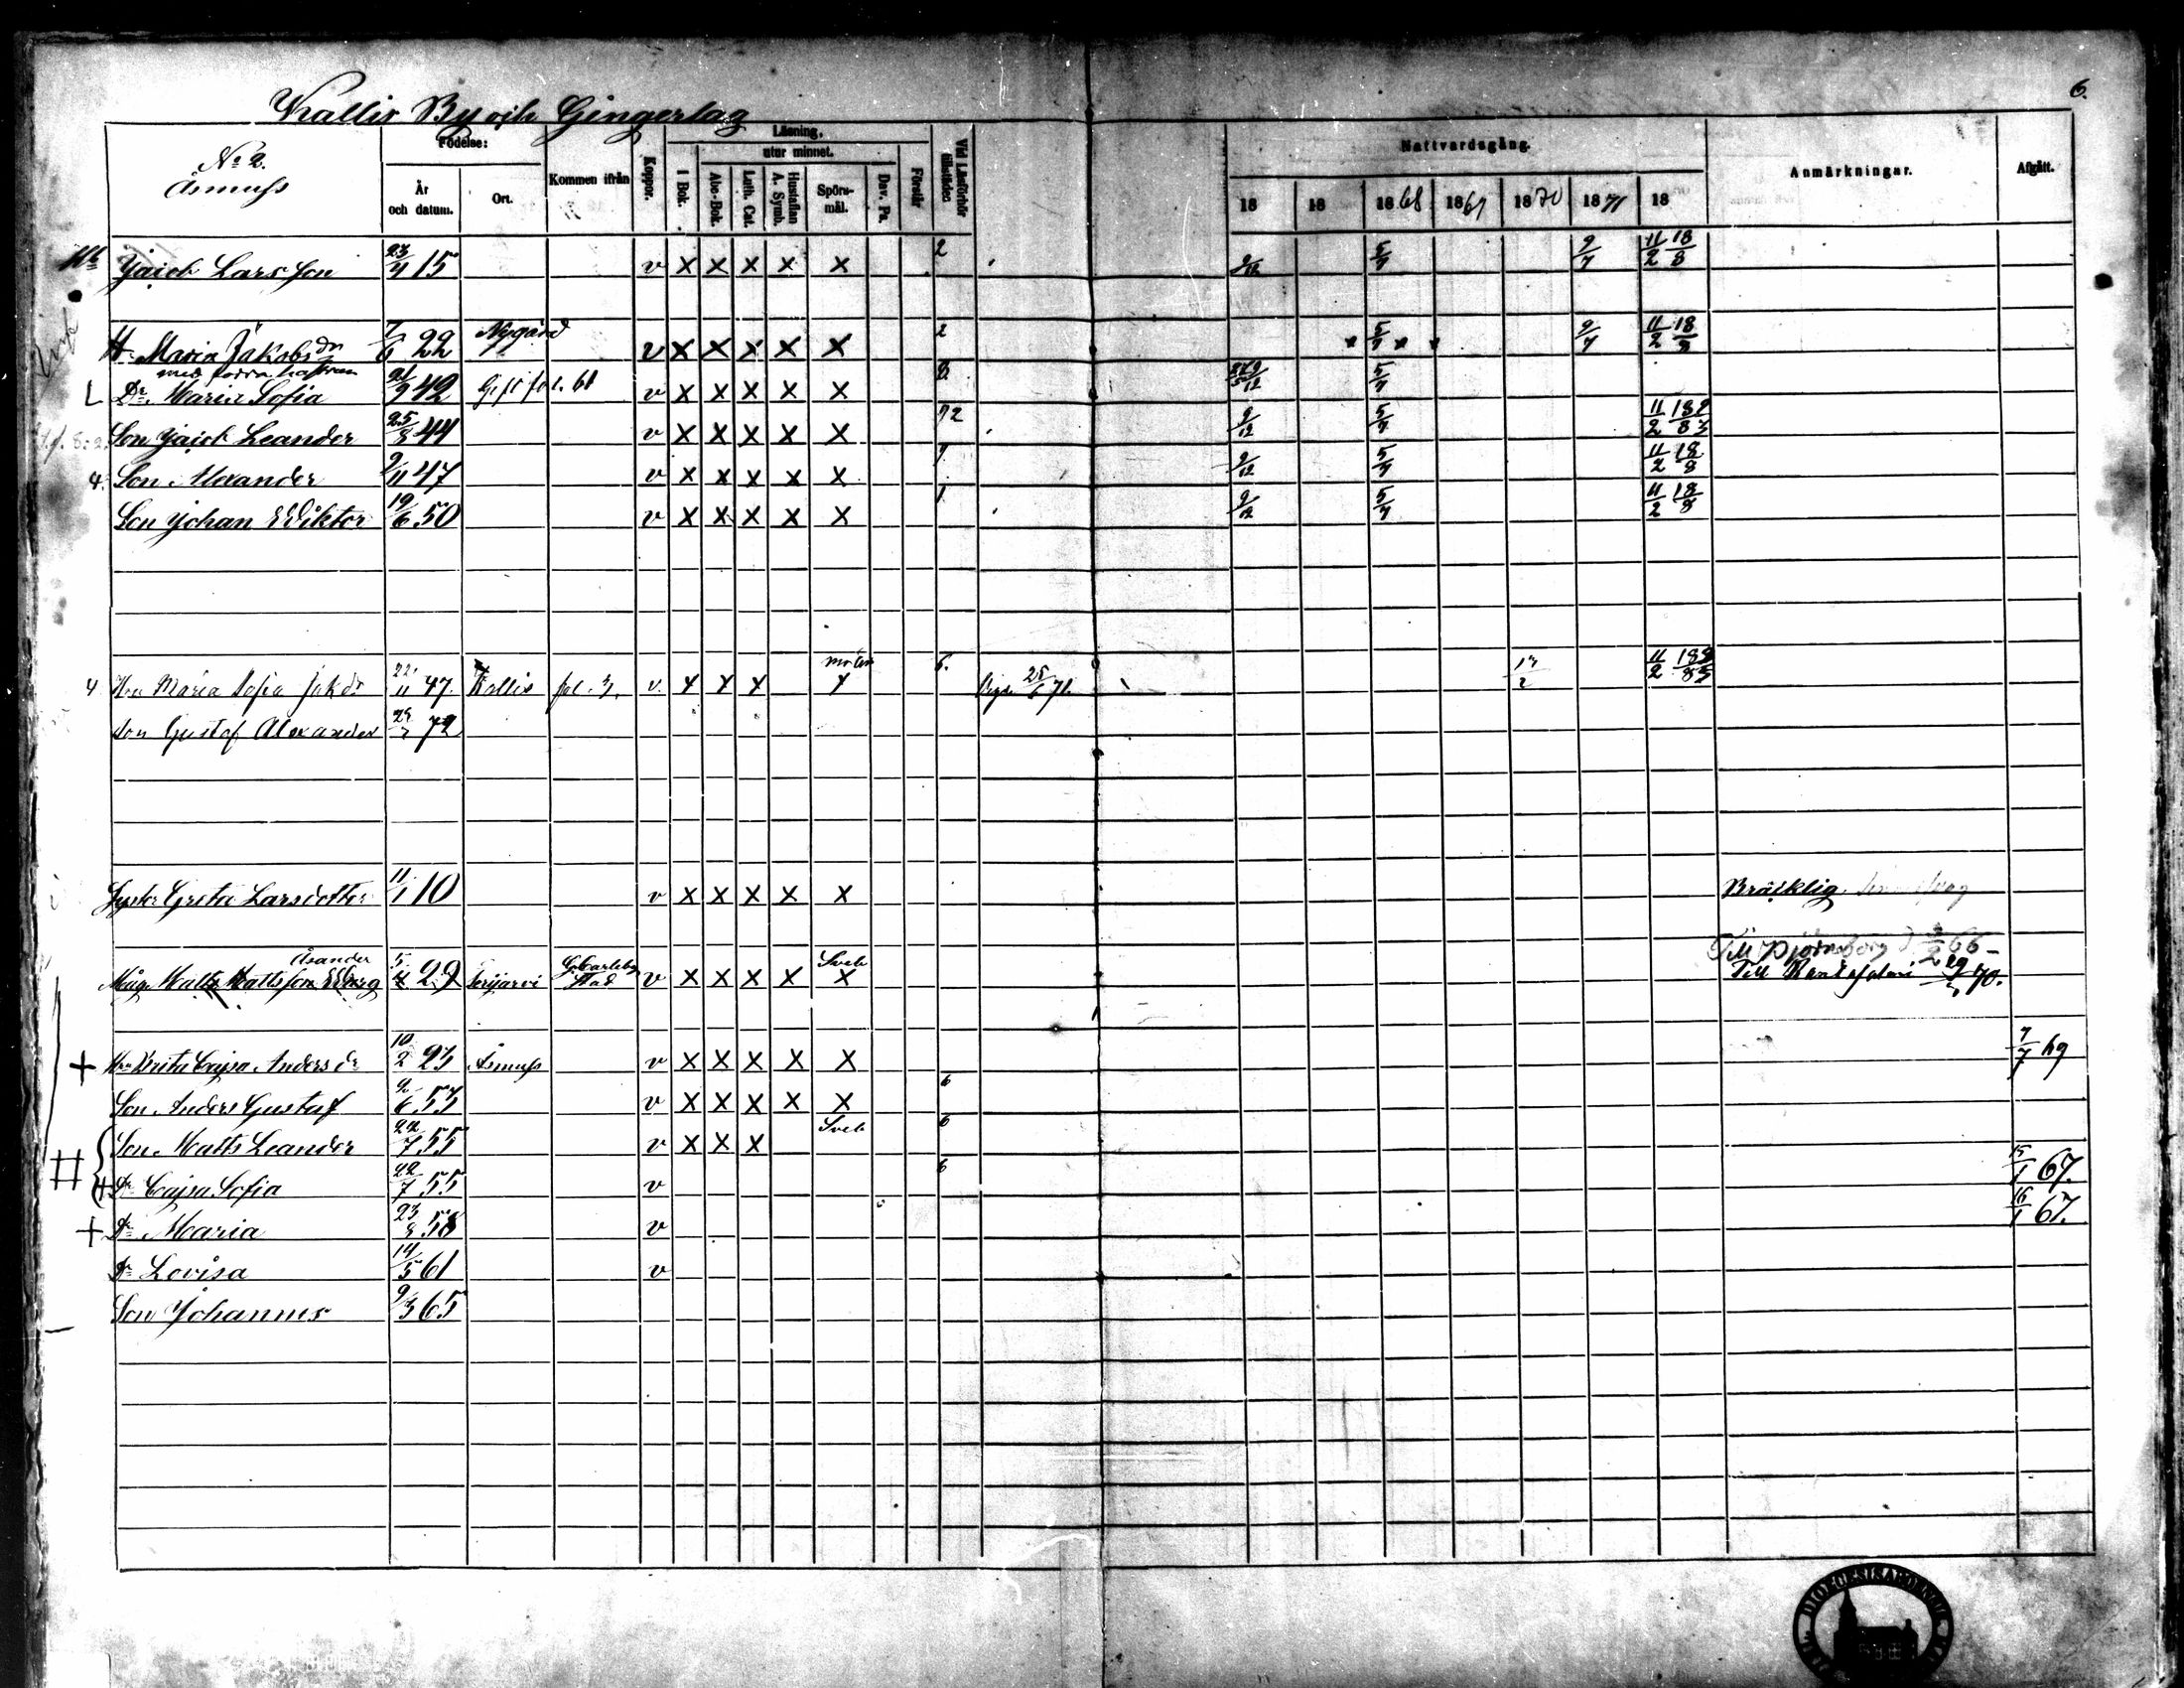 6.
Kallis By och Gingerlag
No 2.
Åsmuss
Födelse:
År och datum.
Ort.
Kommen ifrån
Koppor.
Läsning,
utur minnet.
I Bok.
Abc-Bok.
Luth. Cat.
Hustaflan A. Symb.
Spörs-mål.
Dav. Ps.
Förstår
Vid Läsförhör tillstädes
Nattvardsgång.
18 18 1868 1869 1870 1871 18
Anmärkningar.
Afgått.
Jacob Larsson 23/4 15 v x x x x x 2 9/12 5/7 9/7 11/2 18/8
H. Maria Jakobsdr 7/6 22 Nygård v x x x x x 2 5/7 9/7 11/2 18/8
L Dr. Maria Sofia 42 Gift fol. 61 v x x x x x 8 5/7
Son Jacob Leander 25/8 44 v x x x x x 72 9/12 5/7 11/2
4. Son Alexander 9/11 47 v x x x x x 7 9/12 5/7 11/2 18/8
Son Johan Wiktor 19/6 50 v x x x x x 1 9/12 5/7 11/2 18/8
4 Hu Maria Sofia Jakdr 22/11 47. Kallis fol. 3. v. x x x x 6. Vigd 25/6 71. 11/2
son Gustaf Alexander 72
Syster Greta Larsdotter 11/1 10 v x x x x x Bräcklig
Åsander
Måg Matts Mattsson 29 Terijärvi G. Carleby Stad v x x x x Sveb x Till Björneborg 66
Till 70.
+ Hu Greta Cajsa Andersdr 10/2 23 Åsmuss v x x x x x 7/7 69
Son Anders Gustaf 53 v x x x x x 6
Son Matts Leander 22/7 55 v x x x Sveb 6
Dr Cajsa Sofia 22/7 55 v 6 15/1 67.
+ Dr Maria 23/8 58 v 16/1 67.
Dr Lovisa 14/5 61 v
Son Johannes 9/3 65